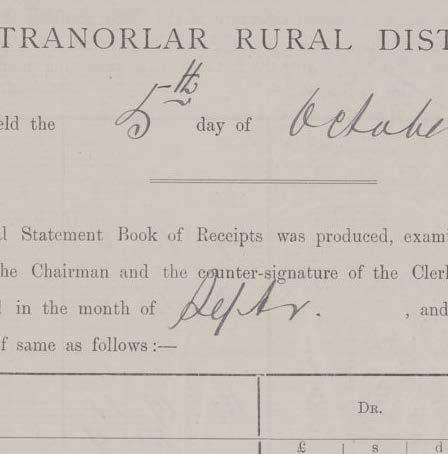 TRANORLAR RURAL DIST
eld the 5th day of Octobe
l Statement Book of Receipts was produced, exam
he Chairman and the counter-signature of the Cler
l in the month of Septr. , and
f same as follows :—
DR.
£ s d